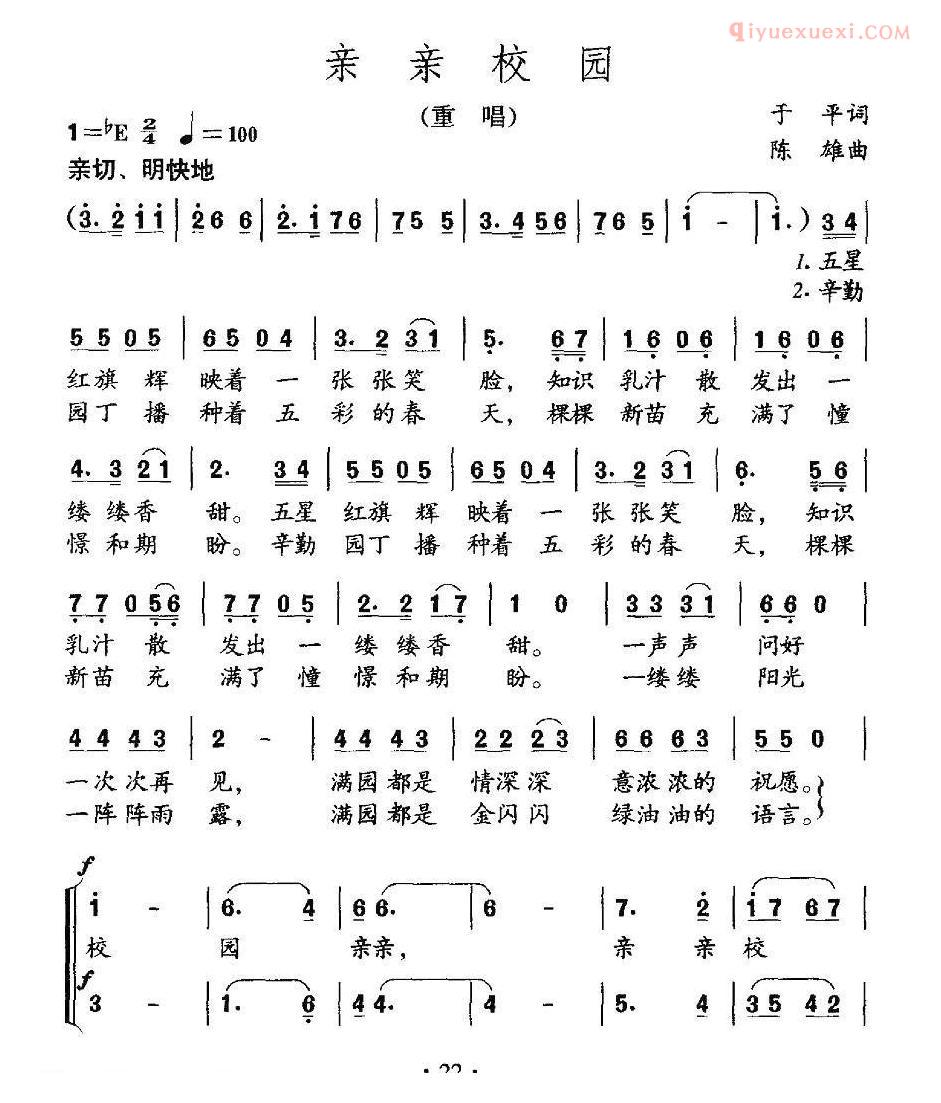 qiyuexuexi.COM
亲亲校园
(重唱)
于平词
1=♭E 2/4 ♩=100
陈雄曲
亲切、明快地
(3. 2 1 1 | 2 6 6 | 2. 1 7 6 | 7 5 5 | 3. 4 5 6 | 7 6 5 | 1 - | 1.) 3 4 |
1. 五星
2. 辛勤
5 5 0 5 | 6 5 0 4 | 3. 2 3 1 | 5. 6 7 | 1 6 0 6 | 1 6 0 6 |
红旗 辉 映着 一 张 张 笑 脸, 知识 乳汁 散 发出 一
园丁 播 种着 五 彩 的 春 天, 棵棵 新苗 充 满了 憧
4. 3 2 1 | 2. 3 4 | 5 5 0 5 | 6 5 0 4 | 3. 2 3 1 | 6. 5 6 |
缕 缕 香 甜。 五星 红旗 辉 映着 一 张 张 笑 脸, 知识
憬 和 期 盼。 辛勤 园丁 播 种着 五 彩 的 春 天, 棵棵
7 7 0 5 6 | 7 7 0 5 | 2. 2 1 7 | 1 0 | 3 3 3 1 | 6 6 0 |
乳汁 散 发出 一 缕 缕 香 甜。 一声 声 问好
新苗 充 满了 憧 憬 和 期 盼。 一缕 缕 阳光
4 4 4 3 | 2 - | 4 4 4 3 | 2 2 2 3 | 6 6 6 3 | 5 5 0 |
一次 次再 见, 满园 都是 情深 深 意浓 浓的 祝愿。
一阵 阵雨 露, 满园 都是 金闪 闪 绿油 油的 语言。
f
1 - | 6. 4 | 6 6. | 6 - | 7. 2 | 1 7 6 7 |
校 园 亲亲, 亲 亲 校
f
3 - | 1. 6 | 4 4. | 4 - | 5. 4 | 3 5 4 2 |
· 22 ·